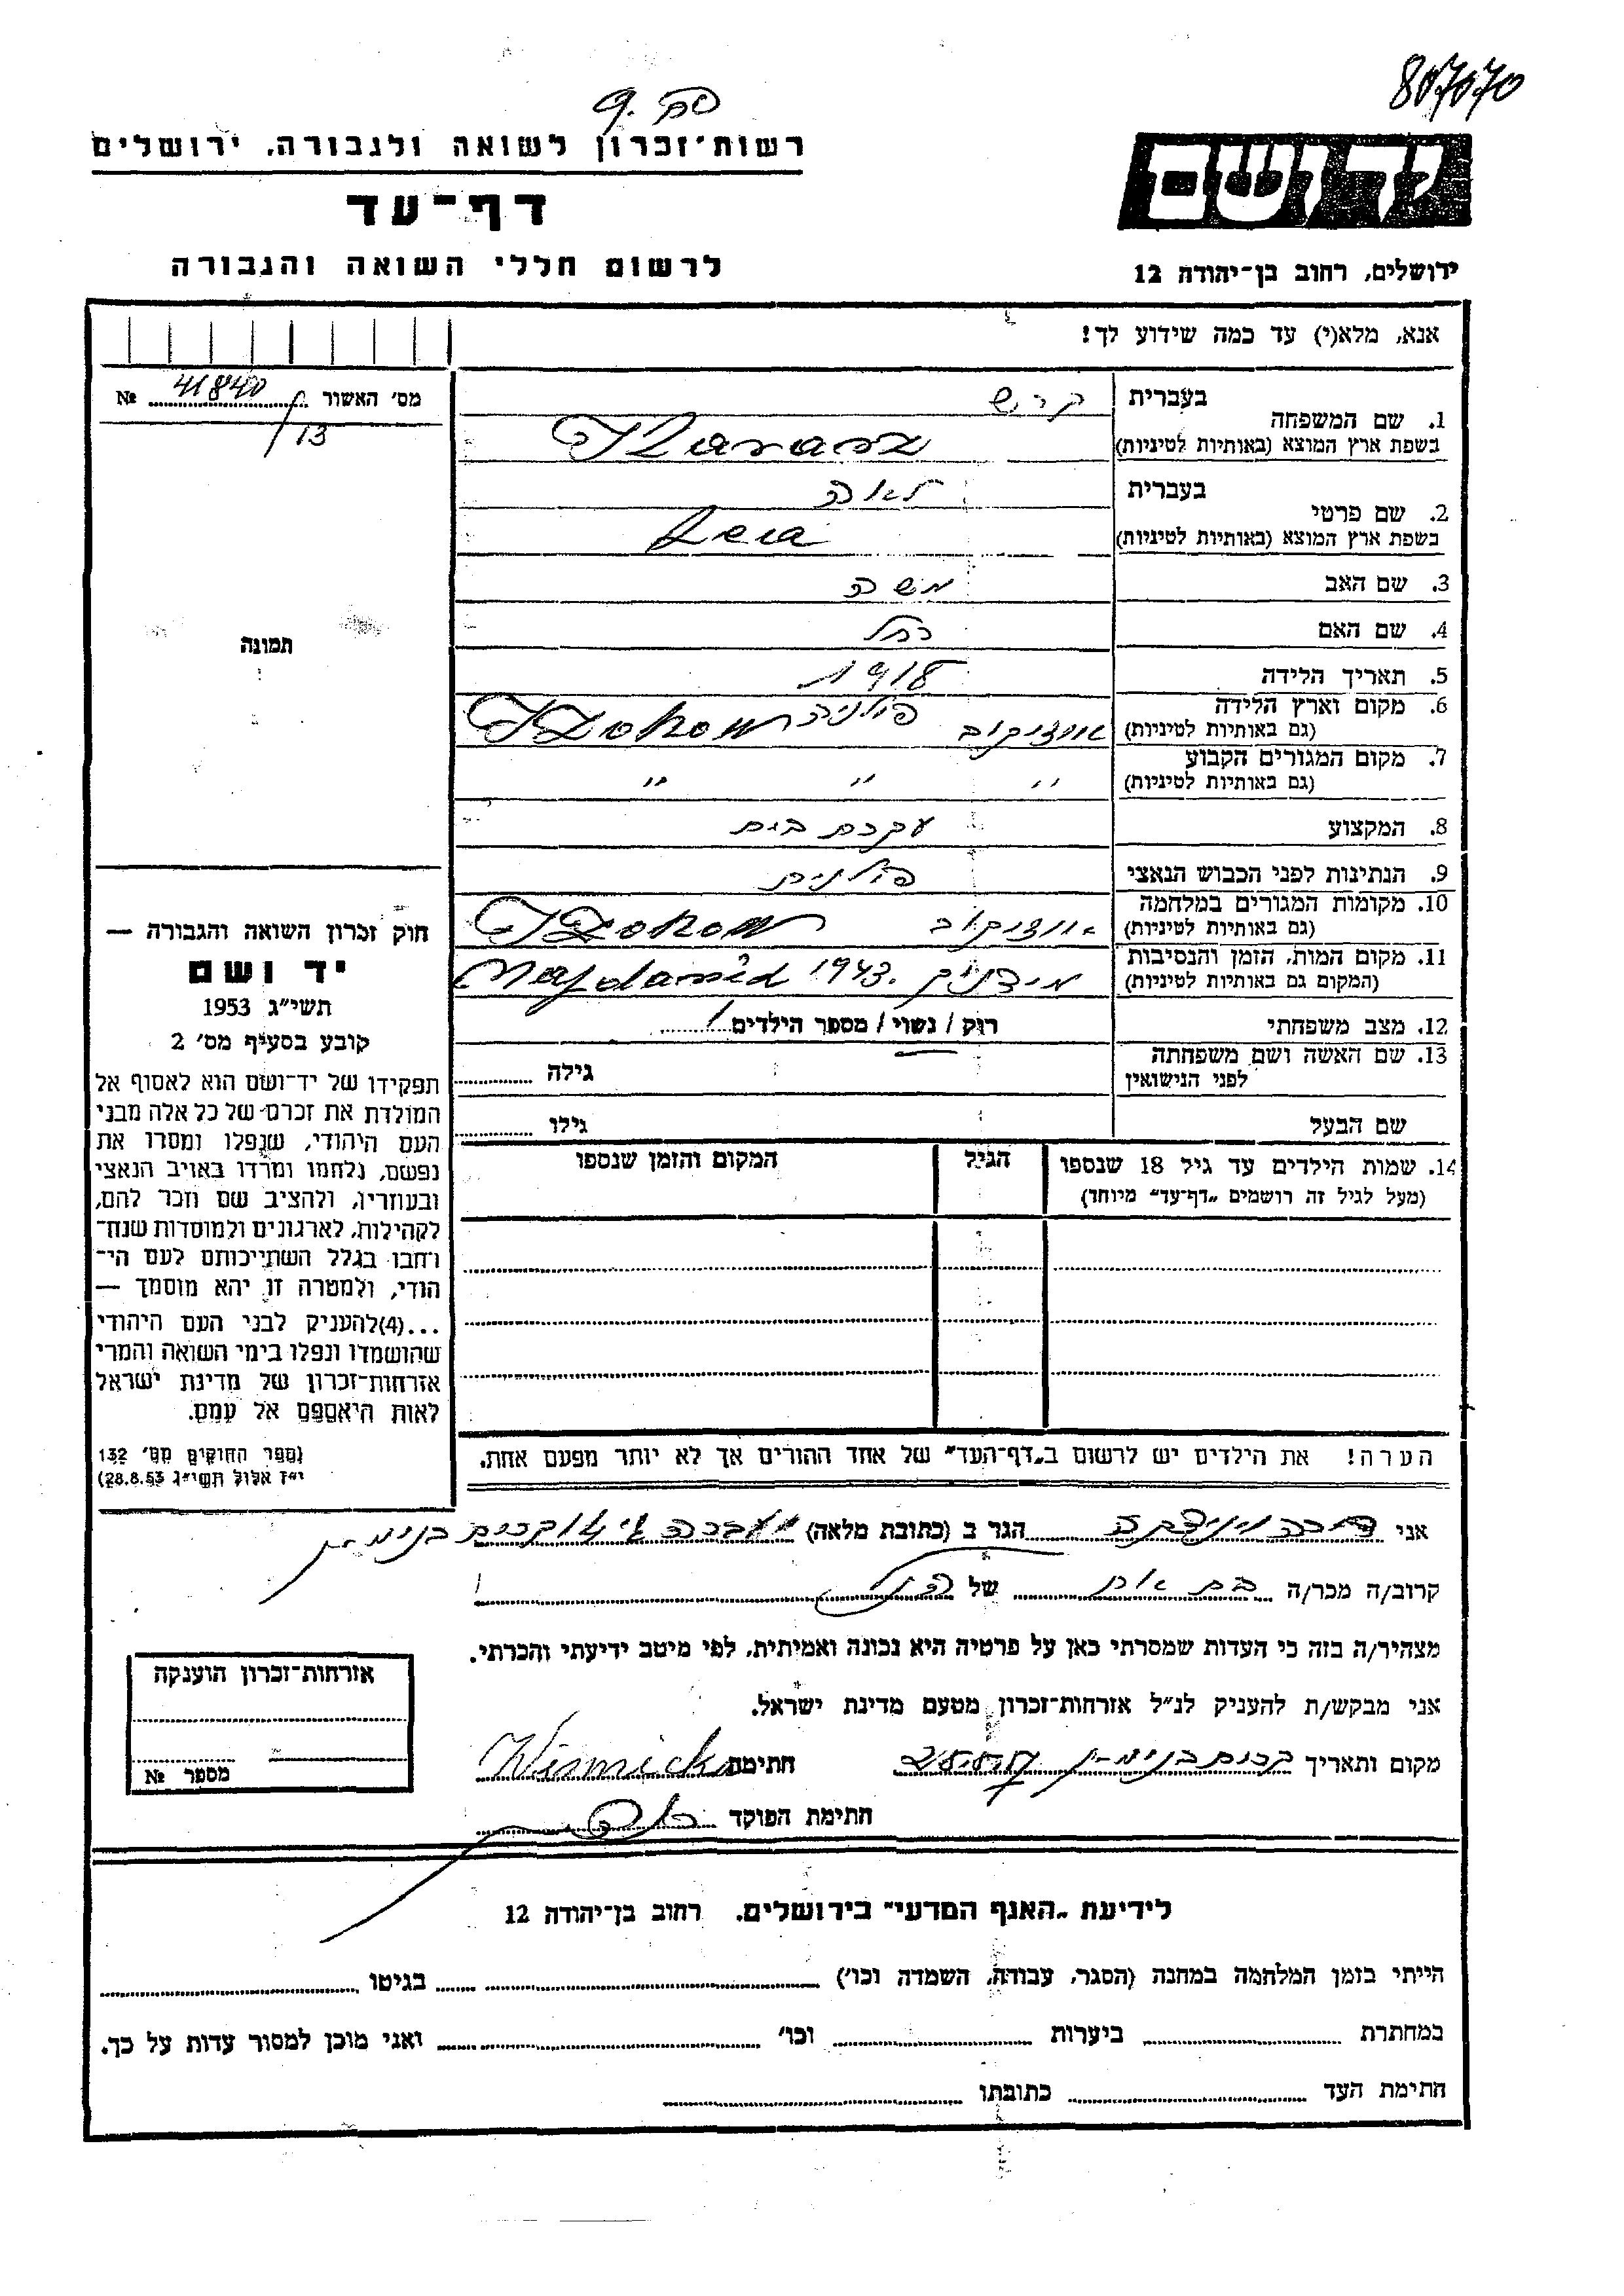 807070
רשות־זכרון לשואה ולגבורה, ירושלים
דף־עד
לרשום חללי השואה והגבורה
יד ושם
ירושלים, רחוב בן־יהודה 12
אנא, מלא(י) עד כמה שידוע לך!
מס׳ האשור 41840 №
/13
בעברית
קרש
1. שם המשפחה
בשפת ארץ המוצא (באותיות לטיניות)
Karasz
בעברית
לאה
2. שם פרטי
בשפת ארץ המוצא (באותיות לטיניות)
Leia
3. שם האב משה
4. שם האם רחל
תמונה
5. תאריך הלידה 1918
6. מקום וארץ הלידה
(גם באותיות לטיניות)
פולניה
7. מקום המגורים הקבוע
(גם באותיות לטיניות)
״ ״ ״
8. המקצוע עקרת בית
9. הנתינות לפני הכבוש הנאצי פולנית
10. מקומות המגורים במלחמה
(גם באותיות לטיניות)
11. מקום המות, הזמן והנסיבות
(המקום גם באותיות לטיניות)
מידניק 1943.
12. מצב משפחתי רווק / נשוי / מספר הילדים 1
13. שם האשה ושם משפחתה
לפני הנישואין
גילה
שם הבעל גילו
14. שמות הילדים עד גיל 18 שנספו הגיל המקום והזמן שנספו
(מעל לגיל זה רושמים „דף־עד״ מיוחד)
הערה! את הילדים יש לרשום ב„דף־העד״ של אחד ההורים אך לא יותר מפעם אחת.
חוק זכרון השואה והגבורה —
יד ושם
תשי״ג 1953
קובע בסעיף מס׳ 2
תפקידו של יד־ושם הוא לאסוף אל
המולדת את זכרם של כל אלה מבני
העם היהודי, שנפלו ומסרו את
נפשם, נלחמו ומרדו באויב הנאצי
ובעוזריו, ולהציב שם וזכר להם,
לקהילות, לארגונים ולמוסדות שנח־
רחבו בגלל השתייכותם לעם הי־
הודי, ולמטרה זו יהא מוסמך —
...(4)להעניק לבני העם היהודי
שהושמדו ונפלו בימי השואה והמרי
אזרחות־זכרון של מדינת ישראל
לאות היאספם אל עמם.
(ספר החוקים מס׳ 132
י״ז אלול תשי״ג 28.8.53)
אני הגר ב (כתובת מלאה) בנימינה
קרוב/ה מכר/ה בת אח של הנ״ל
מצהיר/ה בזה כי העדות שמסרתי כאן על פרטיה היא נכונה ואמיתית, לפי מיטב ידיעתי והכרתי.
אני מבקש/ת להעניק לנ״ל אזרחות־זכרון מטעם מדינת ישראל.
מקום ותאריך חתימת
חתימת הפוקד
אזרחות־זכרון הוענקה
מספר №
לידיעת „האגף המדעי״ בירושלים, רחוב בן־יהודה 12
הייתי בזמן המלחמה במחנה (הסגר, עבודה, השמדה וכו׳) בגיטו
במחתרת ביערות וכו׳ ואני מוכן למסור עדות על כך.
חתימת העד כתובתו